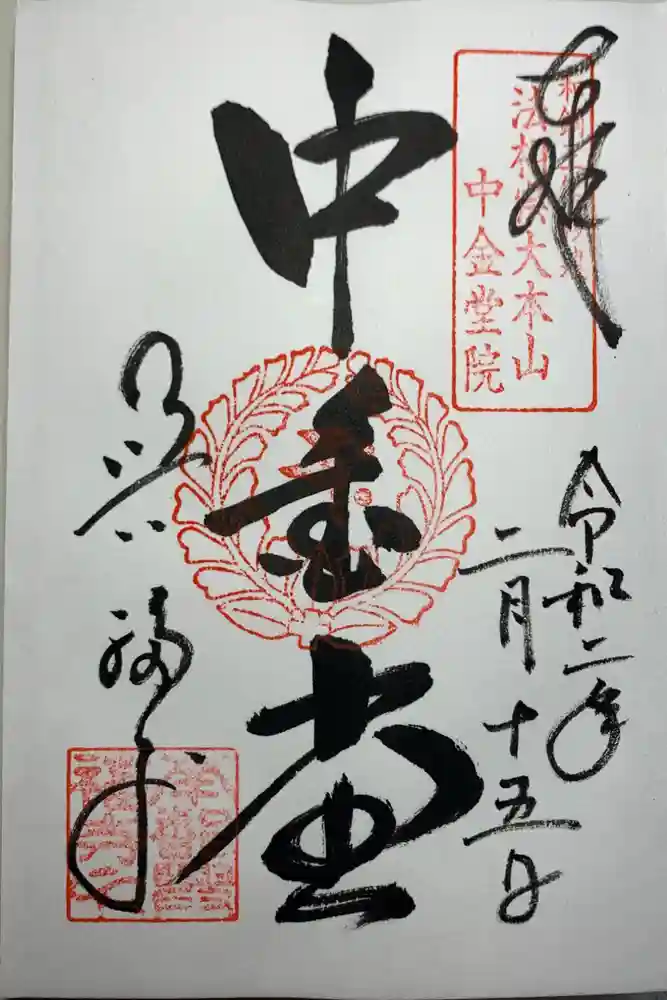 奉拝
法相宗大本山
中金堂院
令和二年
二月十五日
中金堂
興福寺